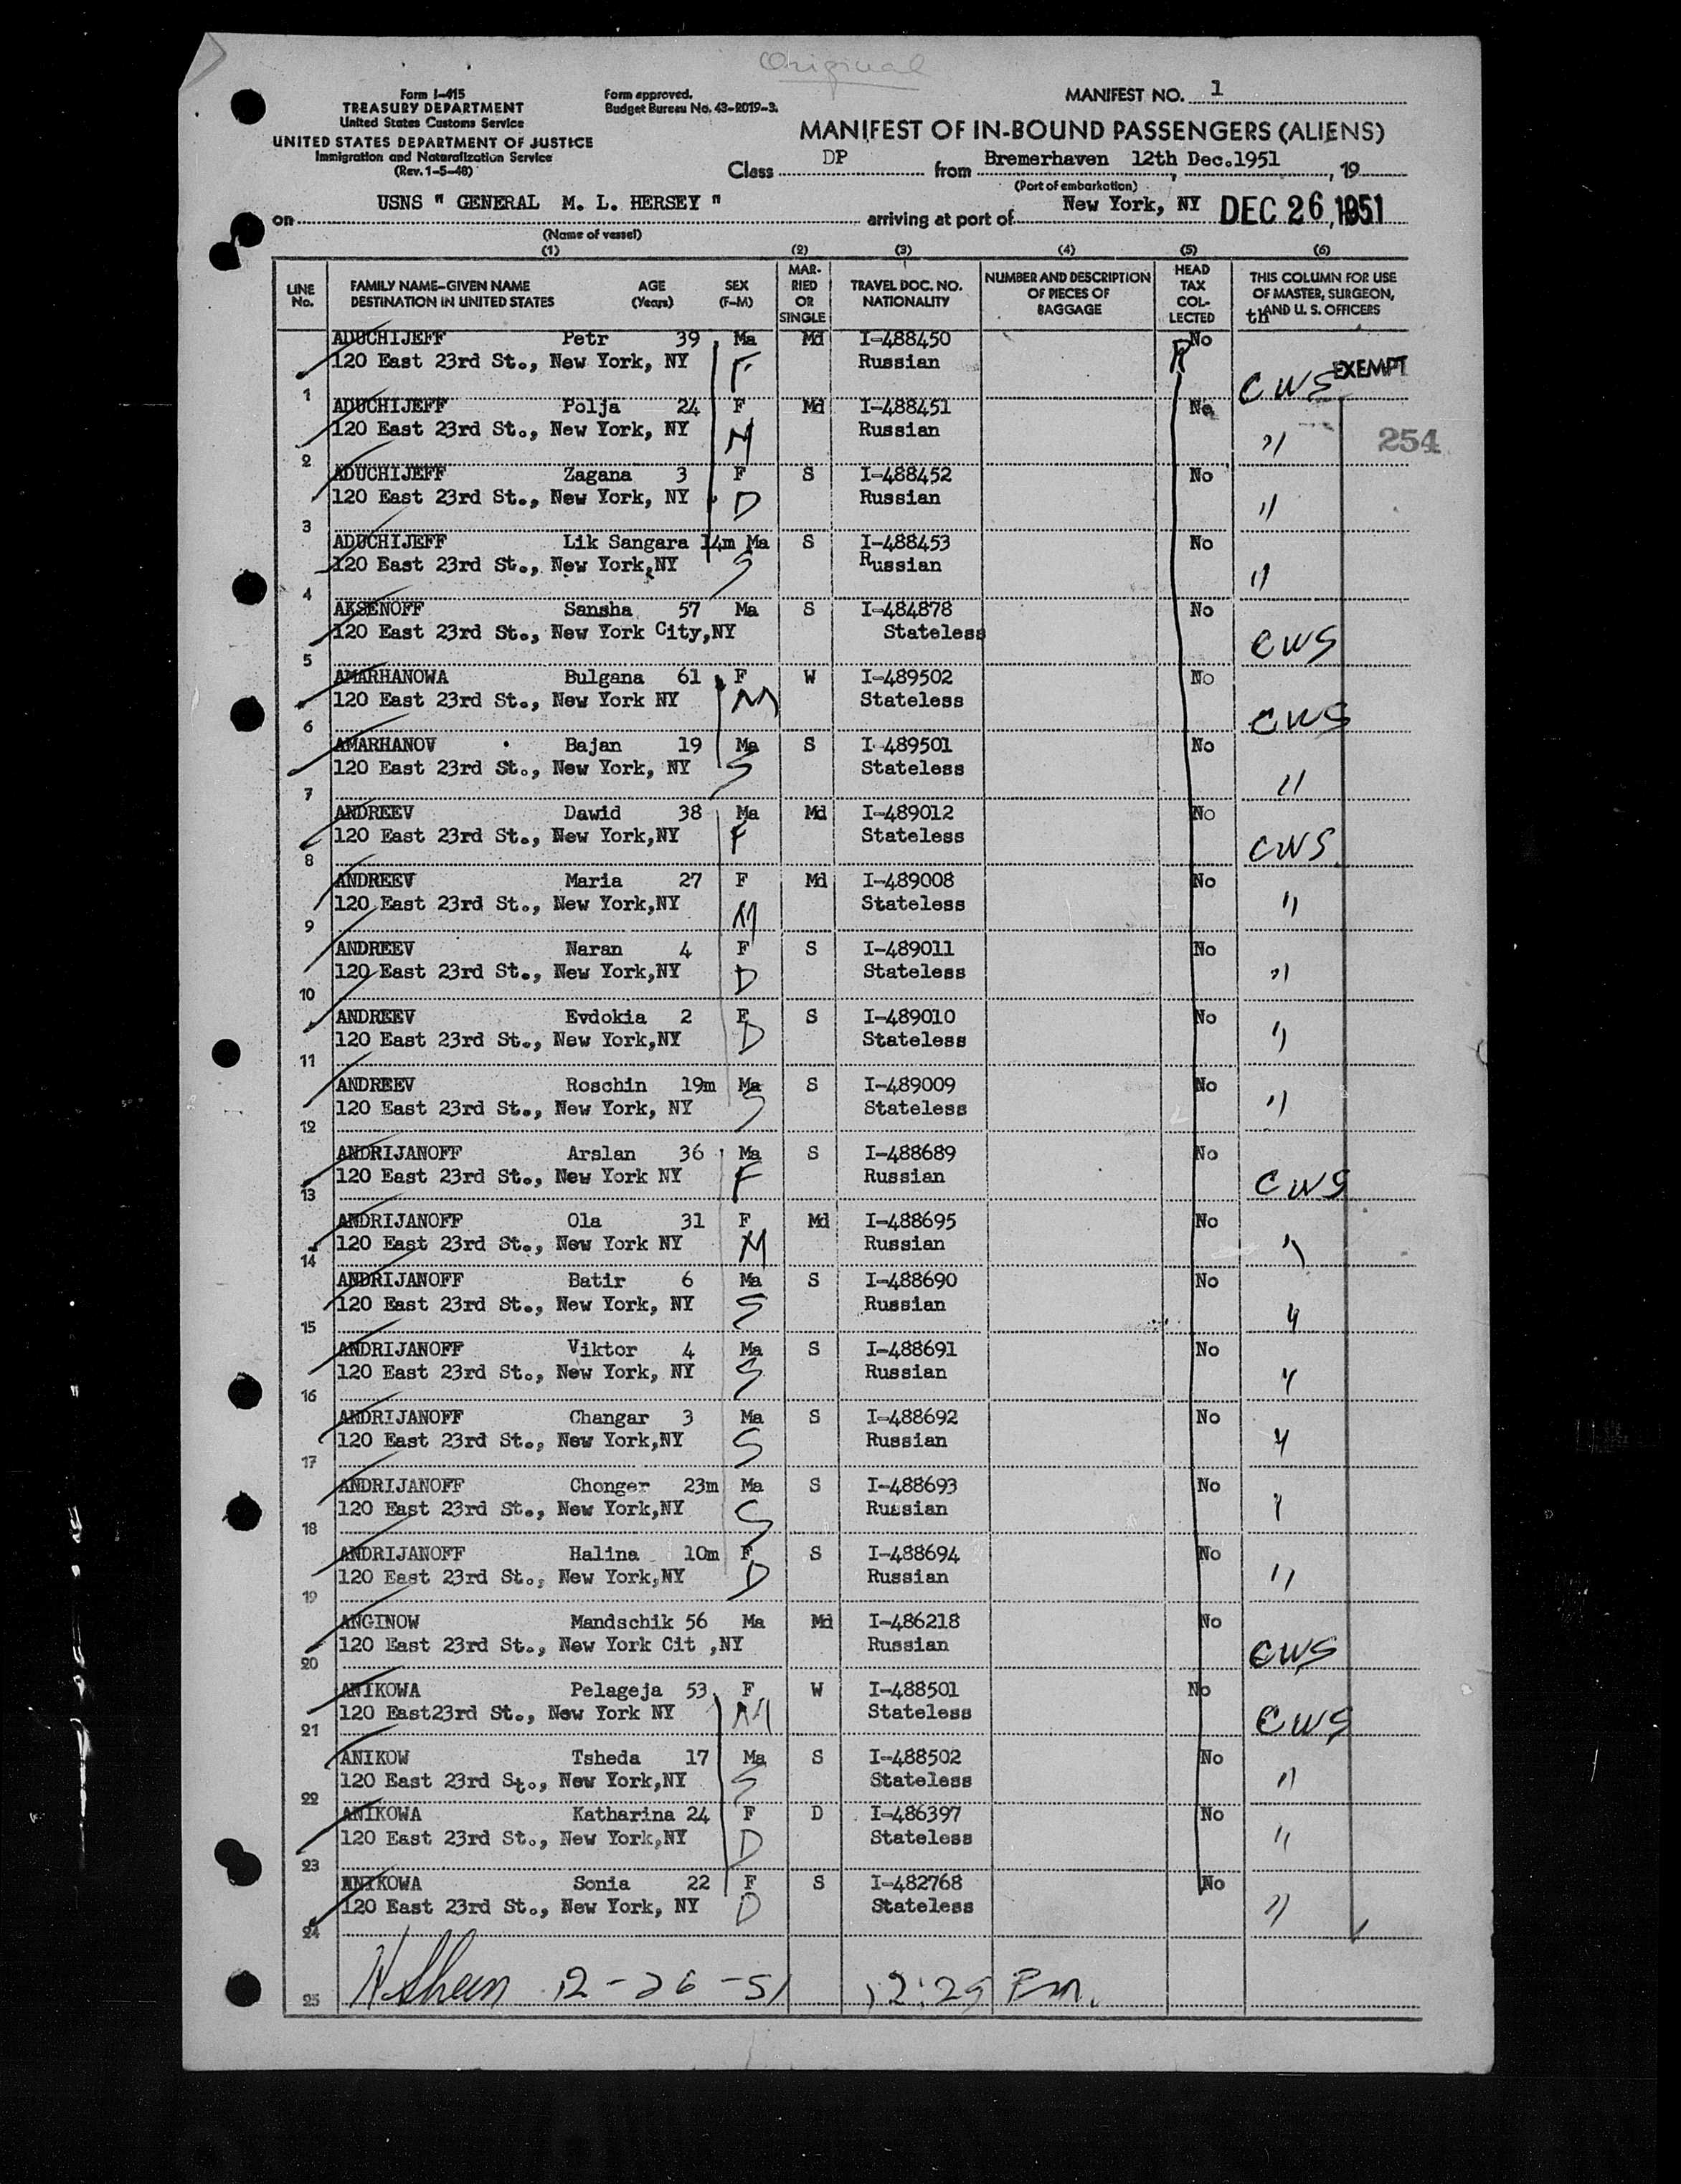 Original
Form I-415
TREASURY DEPARTMENT
United States Customs Service
UNITED STATES DEPARTMENT OF JUSTICE
Immigration and Naturalization Service
(Rev. 1-5-48)
Form approved.
Budget Bureau No. 43-R019-3.
MANIFEST NO. 1
MANIFEST OF IN-BOUND PASSENGERS (ALIENS)
Class DP from Bremerhaven 12th Dec.1951, 19
(Port of embarkation)
on USNS " GENERAL M. L. HERSEY " arriving at port of New York, NY DEC 26, 1951
(Name of vessel)
(1) (2) (3) (4) (5) (6)
LINE No. FAMILY NAME-GIVEN NAME DESTINATION IN UNITED STATES AGE (Years) SEX (F-M) MARRIED OR SINGLE TRAVEL DOC. NO. NATIONALITY NUMBER AND DESCRIPTION OF PIECES OF BAGGAGE HEAD TAX COLLECTED THIS COLUMN FOR USE OF MASTER, SURGEON, AND U. S. OFFICERS
th
ADUCHIJEFF Petr 39 Ma Md I-488450 No
120 East 23rd St., New York, NY F Russian CWS EXEMPT
1
ADUCHIJEFF Polja 24 F Md I-488451 No
120 East 23rd St., New York, NY M Russian " 254
2
ADUCHIJEFF Zagana 3 F S I-488452 No
120 East 23rd St., New York, NY D Russian "
3
ADUCHIJEFF Lik Sangara 14m Ma S I-488453 No
120 East 23rd St., New York,NY S Russian "
4
AKSENOFF Sansha 57 Ma S I-484878 No
120 East 23rd St., New York City,NY Stateless CWS
5
AMARHANOWA Bulgana 61 F W I-489502 No
120 East 23rd St., New York NY M Stateless CWS
6
AMARHANOV Bajan 19 Ma S I-489501 No
120 East 23rd St., New York, NY S Stateless "
7
ANDREEV Dawid 38 Ma Md I-489012 No
120 East 23rd St., New York,NY F Stateless CWS
8
ANDREEV Maria 27 F Md I-489008 No
120 East 23rd St., New York,NY M Stateless "
9
ANDREEV Naran 4 F S I-489011 No
120 East 23rd St., New York,NY D Stateless "
10
ANDREEV Evdokia 2 F S I-489010 No
120 East 23rd St., New York,NY D Stateless "
11
ANDREEV Roschin 19m Ma S I-489009 No
120 East 23rd St., New York, NY S Stateless "
12
ANDRIJANOFF Arslan 36 Ma S I-488689 No
120 East 23rd St., New York NY F Russian CWS
13
ANDRIJANOFF Ola 31 F Md I-488695 No
120 East 23rd St., New York NY M Russian "
14
ANDRIJANOFF Batir 6 Ma S I-488690 No
120 East 23rd St., New York, NY S Russian "
15
ANDRIJANOFF Viktor 4 Ma S I-488691 No
120 East 23rd St., New York, NY S Russian "
16
ANDRIJANOFF Changar 3 Ma S I-488692 No
120 East 23rd St., New York,NY S Russian "
17
ANDRIJANOFF Chonger 23m Ma S I-488693 No
120 East 23rd St., New York,NY S Russian "
18
ANDRIJANOFF Halina 10m F S I-488694 No
120 East 23rd St., New York,NY D Russian "
19
ANGINOW Mandschik 56 Ma Md I-486218 No
120 East 23rd St., New York Cit ,NY Russian CWS
20
ANIKOWA Pelageja 53 F W I-488501 No
120 East23rd St., New York NY M Stateless CWS
21
ANIKOW Tsheda 17 Ma S I-488502 No
120 East 23rd St., New York,NY S Stateless "
22
ANIKOWA Katharina 24 F D I-486397 No
120 East 23rd St., New York,NY D Stateless "
23
ANIKOWA Sonia 22 F S I-482768 No
120 East 23rd St., New York, NY D Stateless "
24
12-26-51 12:29 Pm.
25